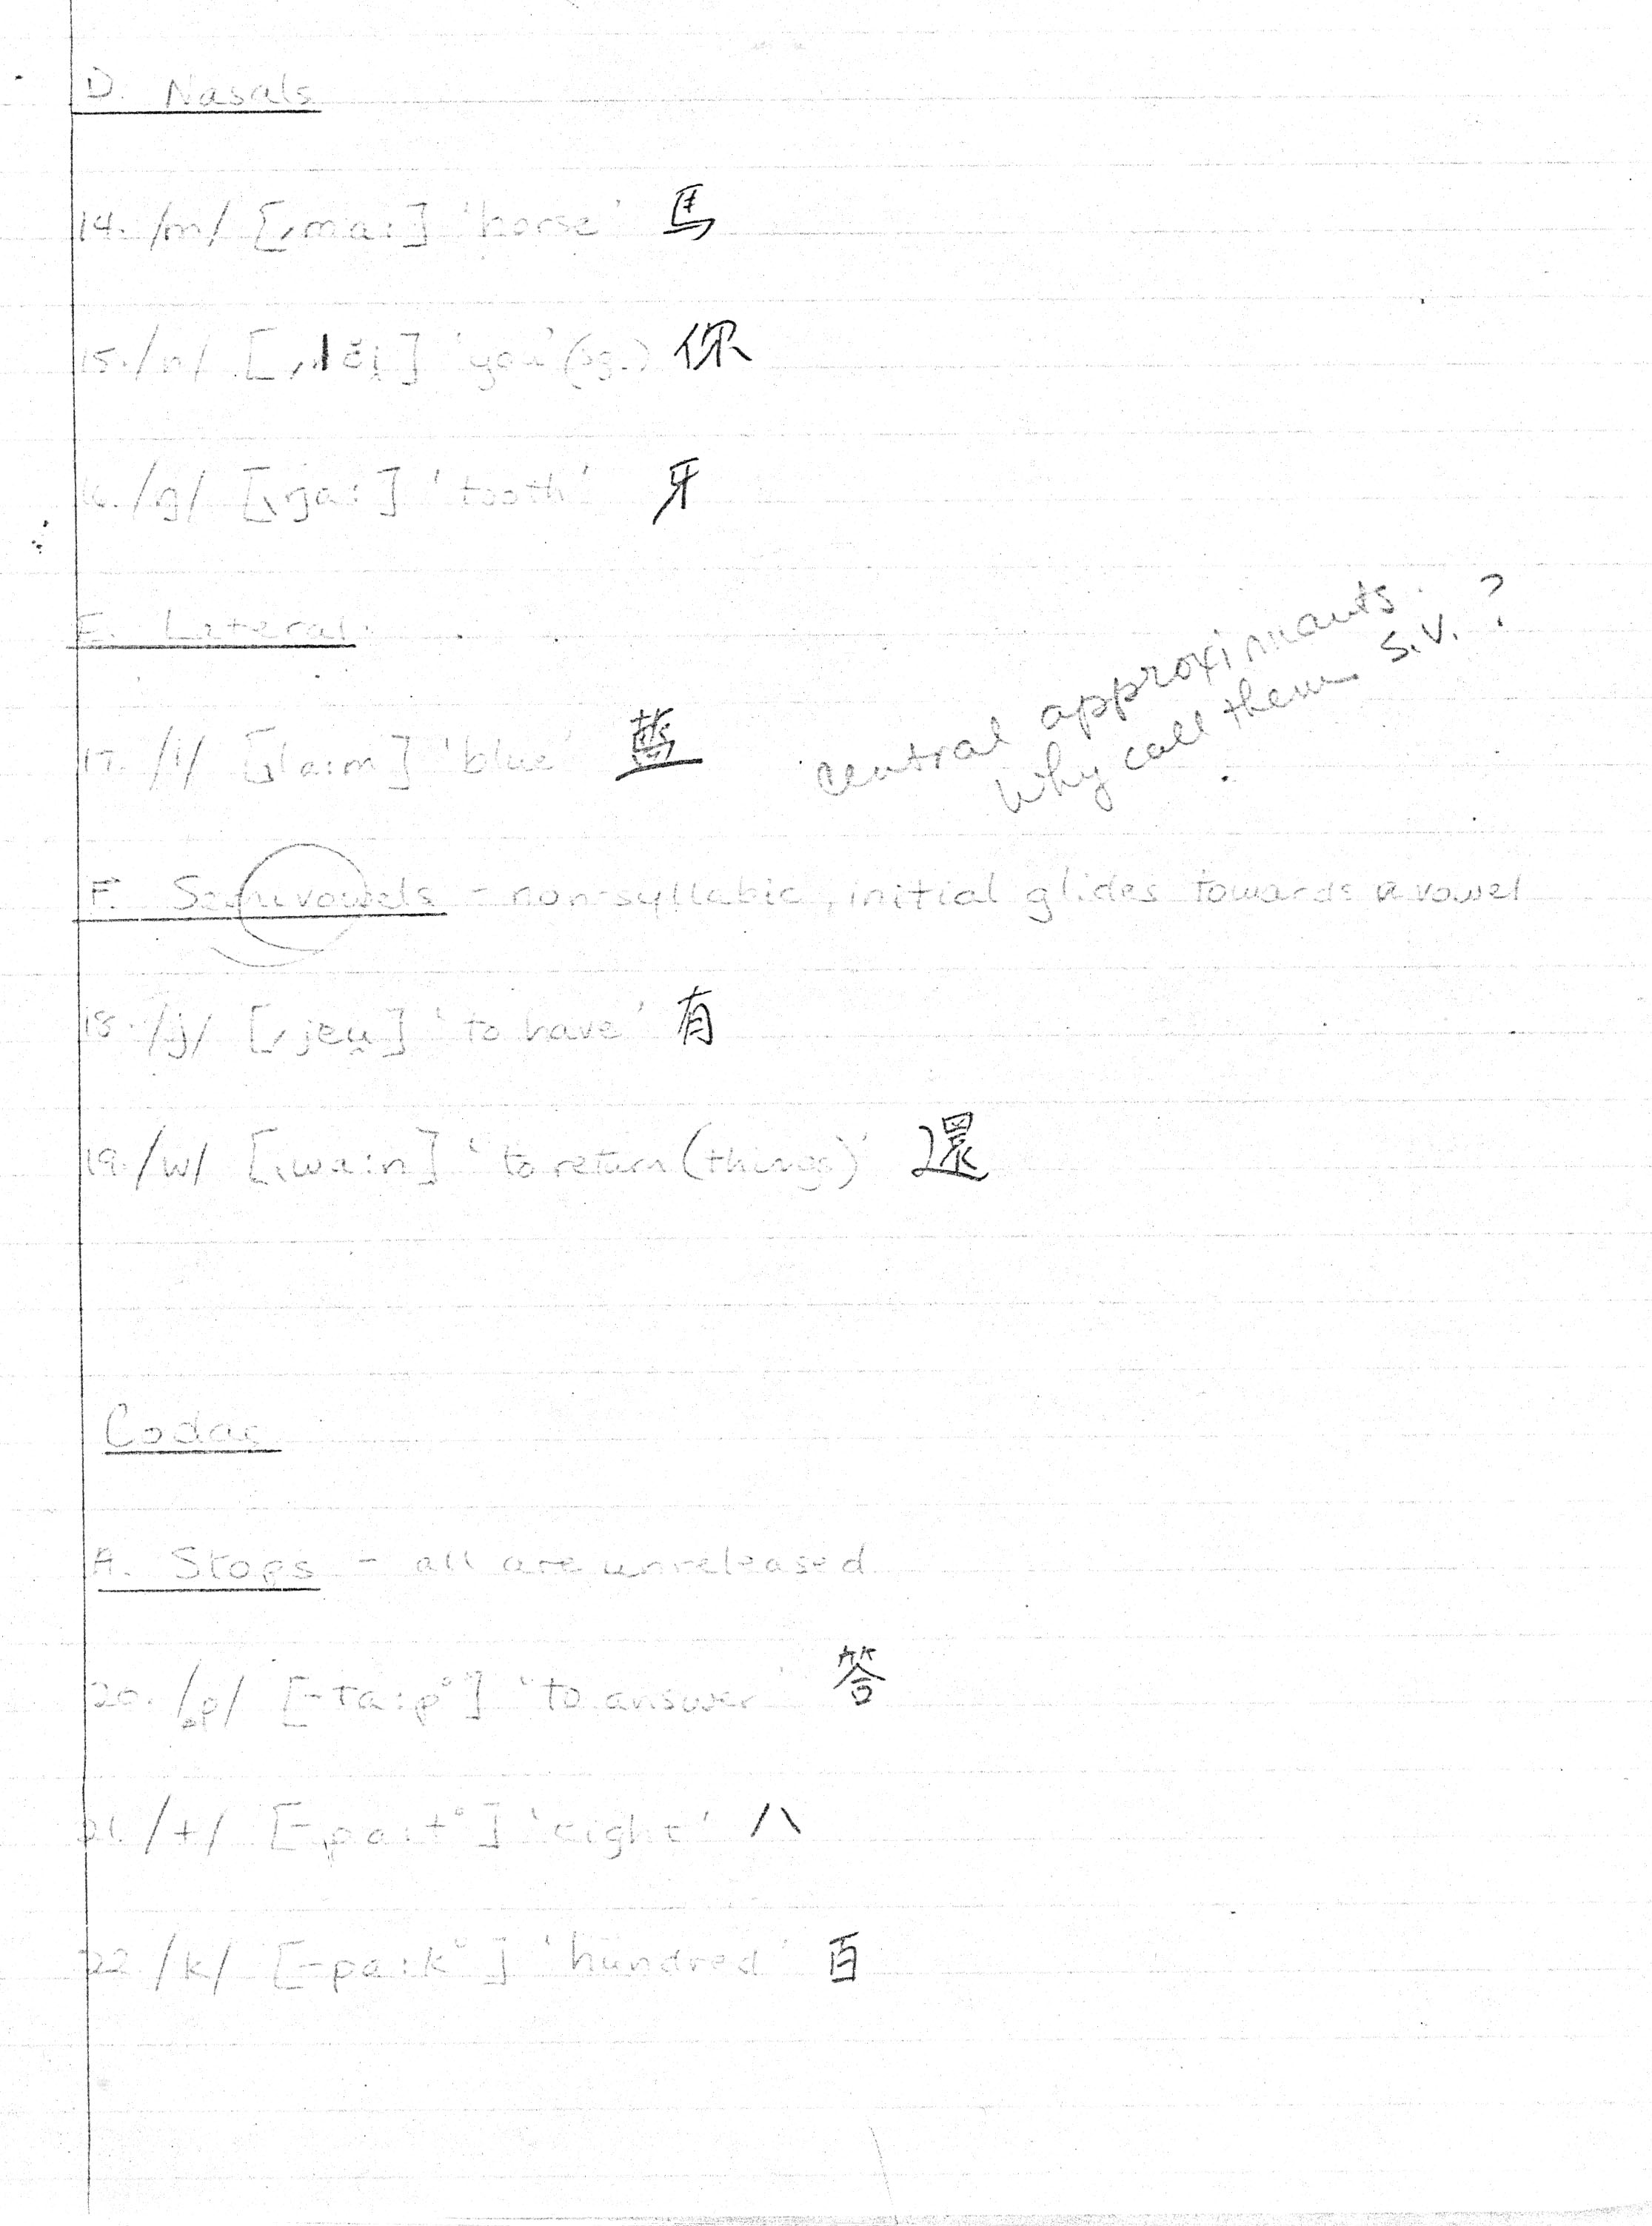 D. Nasals
14. /m/ [ˏma:] 'horse' 馬
15. /n/ [ˏlĕi̯] 'you' (sg.) 你
16. /ŋ/ [ˎŋa:] 'tooth' 牙
E. Lateral
central approximants.
Why call them S.V. ?
17. /l/ [ˎla:m] 'blue' 藍
F. Semivowels - non-syllabic, initial glides towards a vowel
18. /j/ [ˏjɐu̯] 'to have' 有
19. /w/ [ˎwa:n] 'to return (things)' 還
Codas
A. Stops - all are unreleased
20. /p/ [-ta:p°] 'to answer' 答
21. /t/ [-pa:t°] 'eight' 八
22. /k/ [-pa:k°] 'hundred' 百